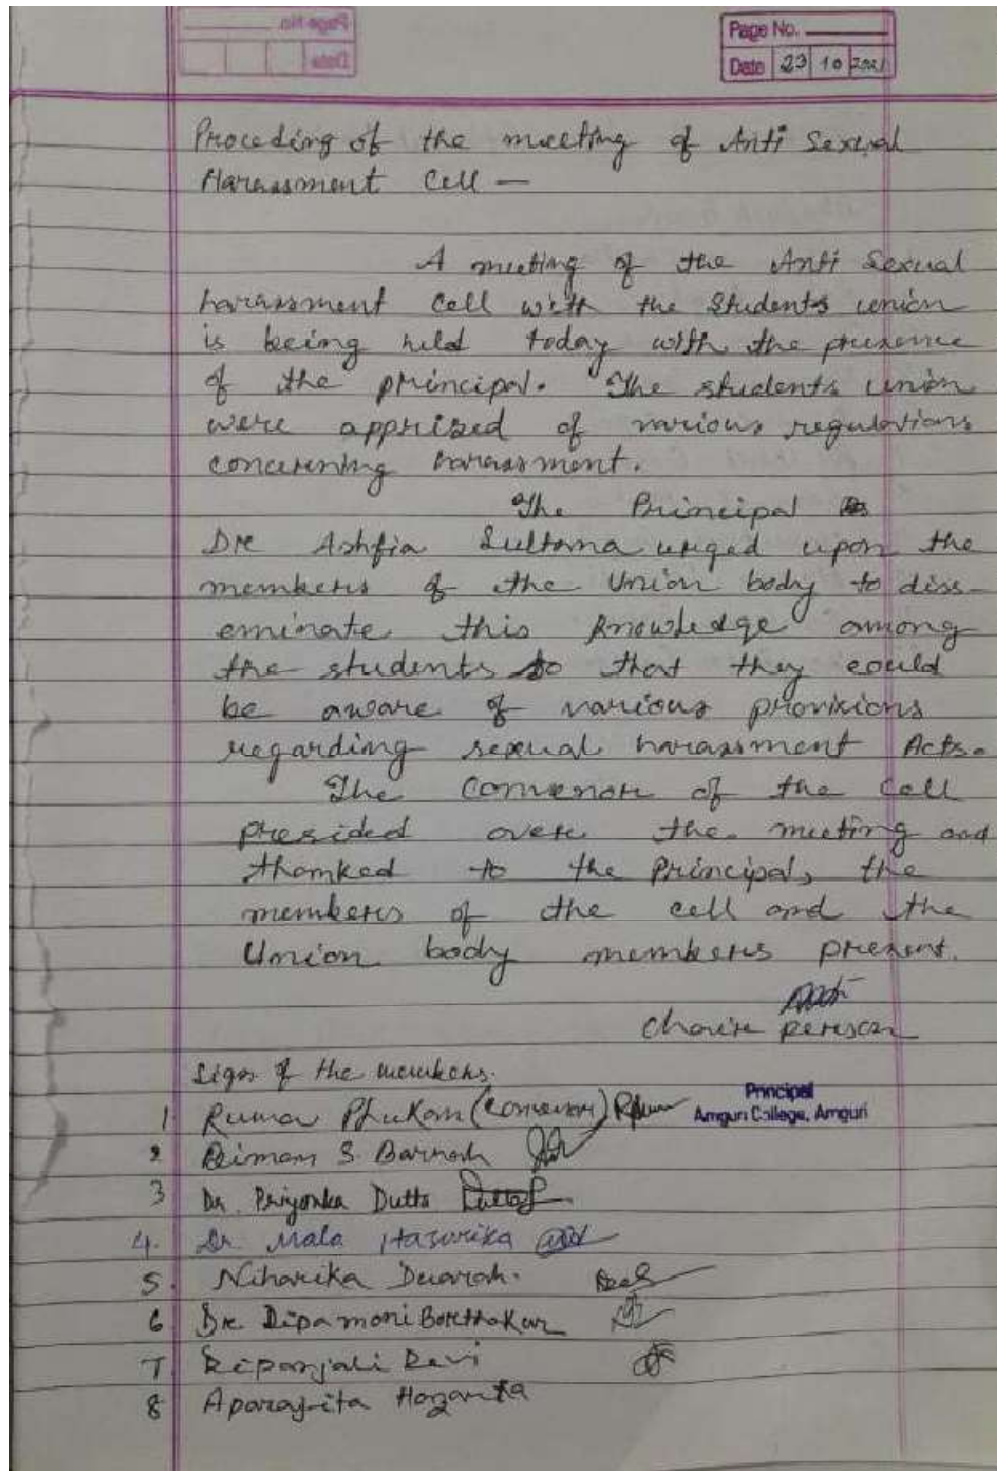 Page No.
Date 23 10 2021
Proceding of the meeting of Anti Sexual
Harassment Cell —
A meeting of the Anti Sexual
harassment Cell with the Students union
is being held today with the presence
of the principal. The students union
were apprized of various regulations
concerning harassment.
The Principal
Dr Ashfia Sultana urged upon the
members of the Union body to diss-
eminate this knowledge among
the students so that they could
be aware of various provisions
regarding sexual harassment Acts.
The Convenor of the Cell
presided over the meeting and
thanked to the Principal, the
members of the cell and the
Union body members present.
Chair person
Sign of the members.
Principal
Amguri College, Amguri
1. Ruma Phukan (Convenor)
2 Siman S. Barnah
3 Dr. Priyanka Dutta
4. Dr Mala Hazarika
5. Niharika Dewrah.
6 Dr Dipamoni Borthakur
7 Ripanjali Devi
8 Aparajita Hazarika